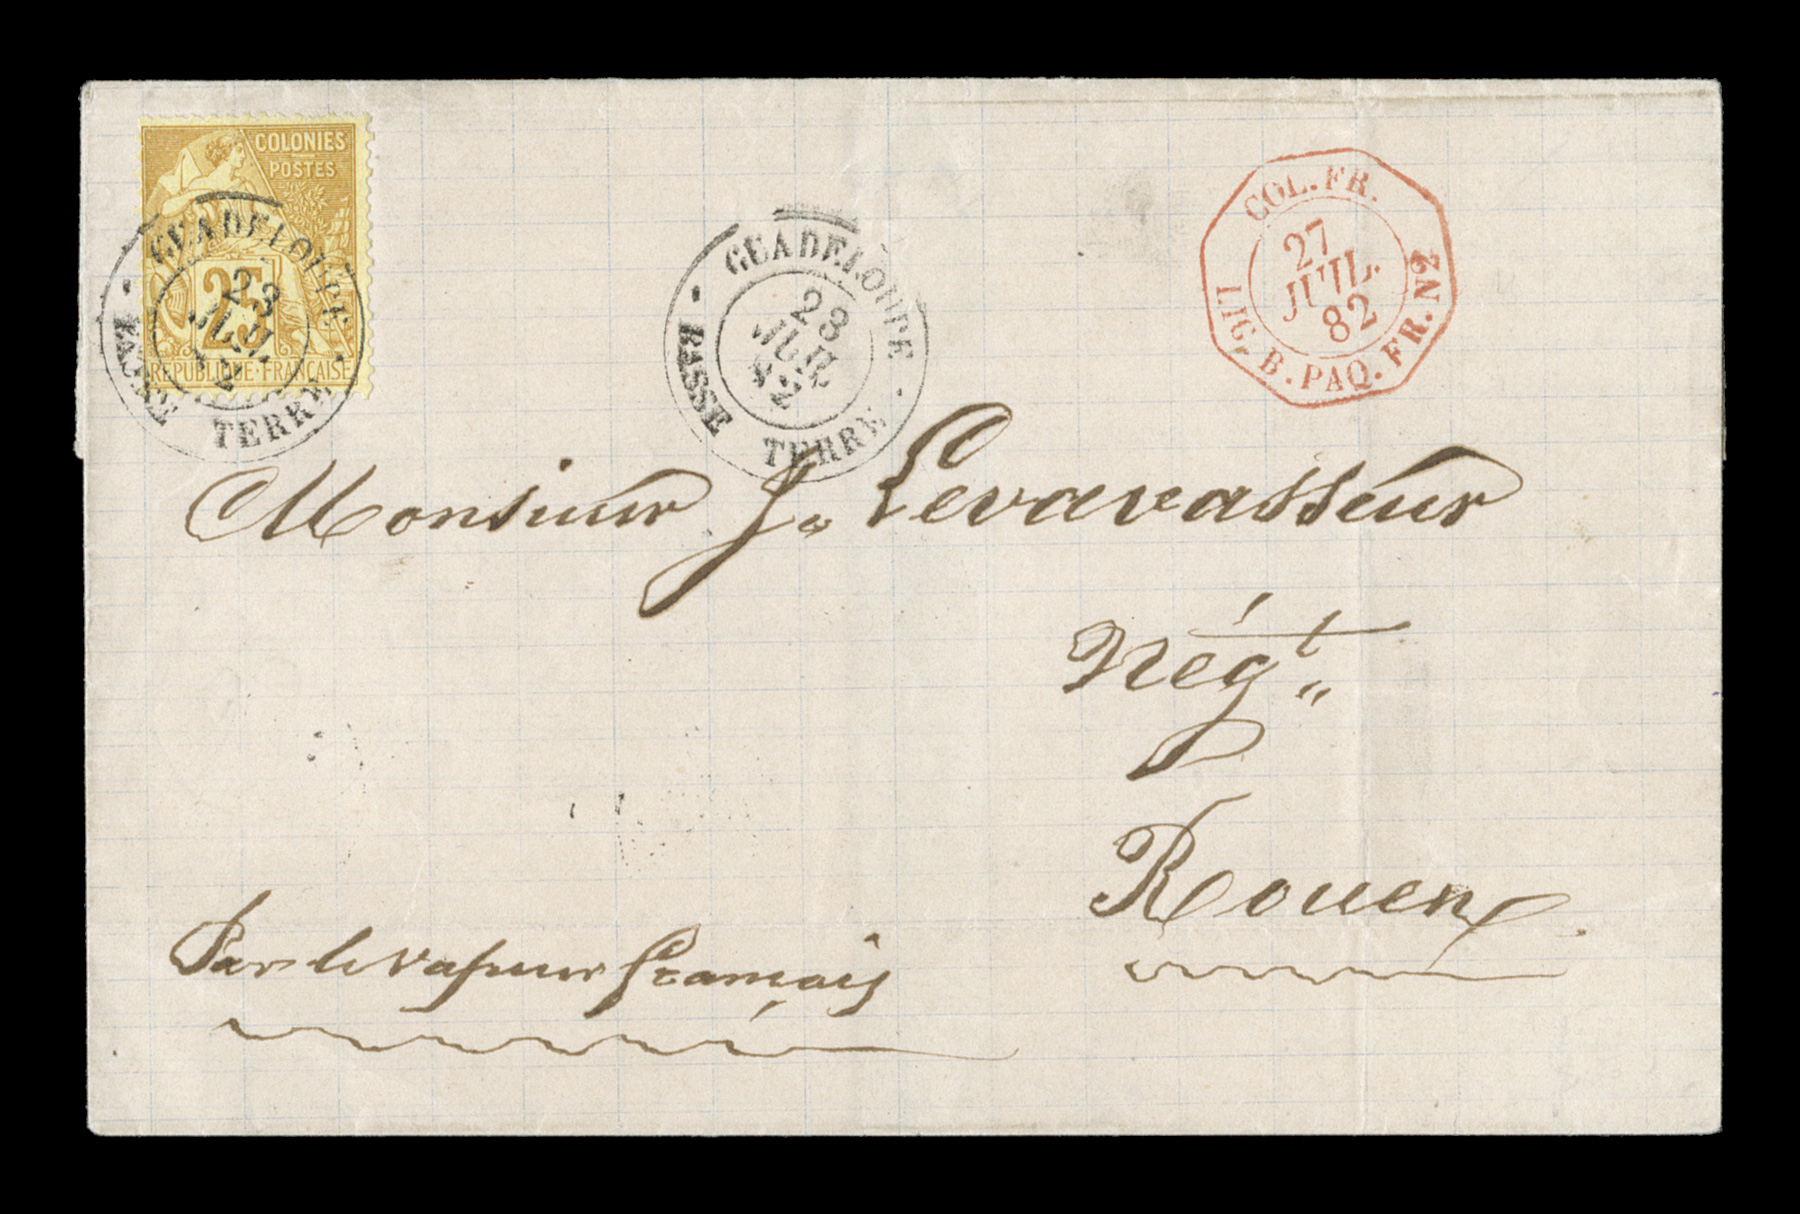 COLONIES
POSTES
25
REPUBLIQUE FRANÇAISE
GUADELOUPE
23
JUIL
82
BASSE TERRE
GUADELOUPE
23
JUIL
82
BASSE TERRE
COL. FR.
27
JUIL.
82
LIG. B. PAQ. FR. N2
Monsieur J. Levavasseur
Négt.
Rouen
Par le vapeur français